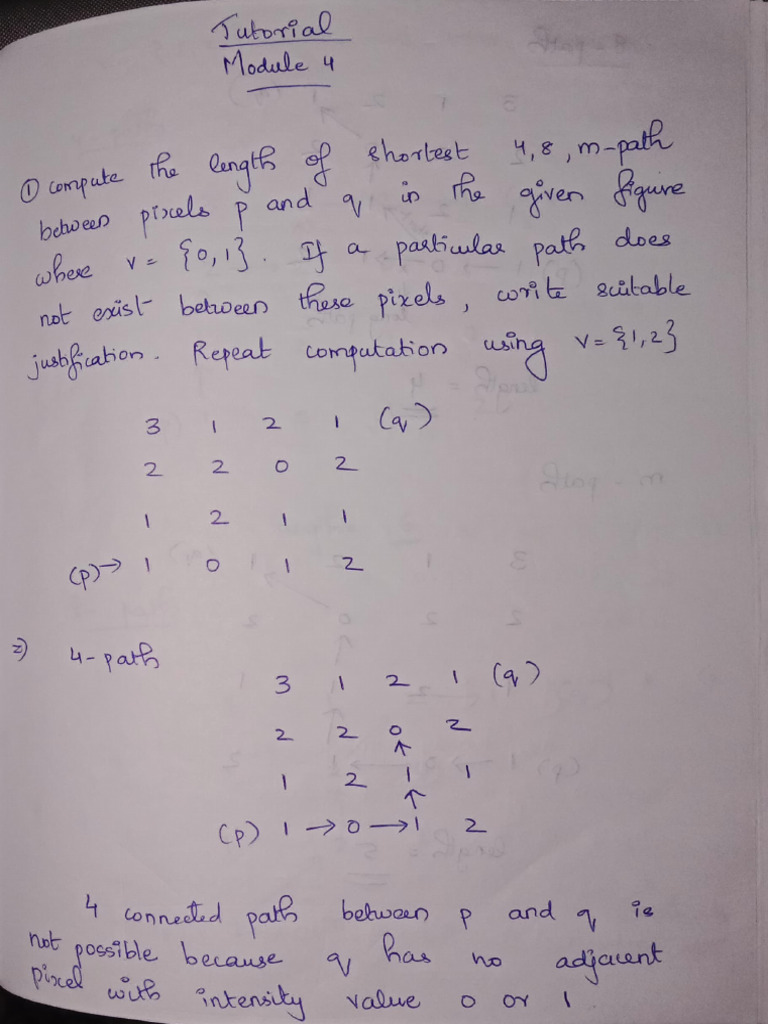 Tutorial
Module 4
① compute the length of shortest 4,8, m-path
between pixels p and q in the given figure
where v = {0,1}. If a particular path does
not exist between these pixels, write suitable
justification. Repeat computation using v={1,2}
3 1 2 1 (q)
2 2 0 2
1 2 1 1
(p)→ 1 0 1 2
2) 4-path
3 1 2 1 (q)
2 2 0 2
↑
1 2 1 1
↑
(p) 1 → 0 → 1 2
4 connected path between p and q is
not possible because q has no adjacent
pixel with intensity value 0 or 1